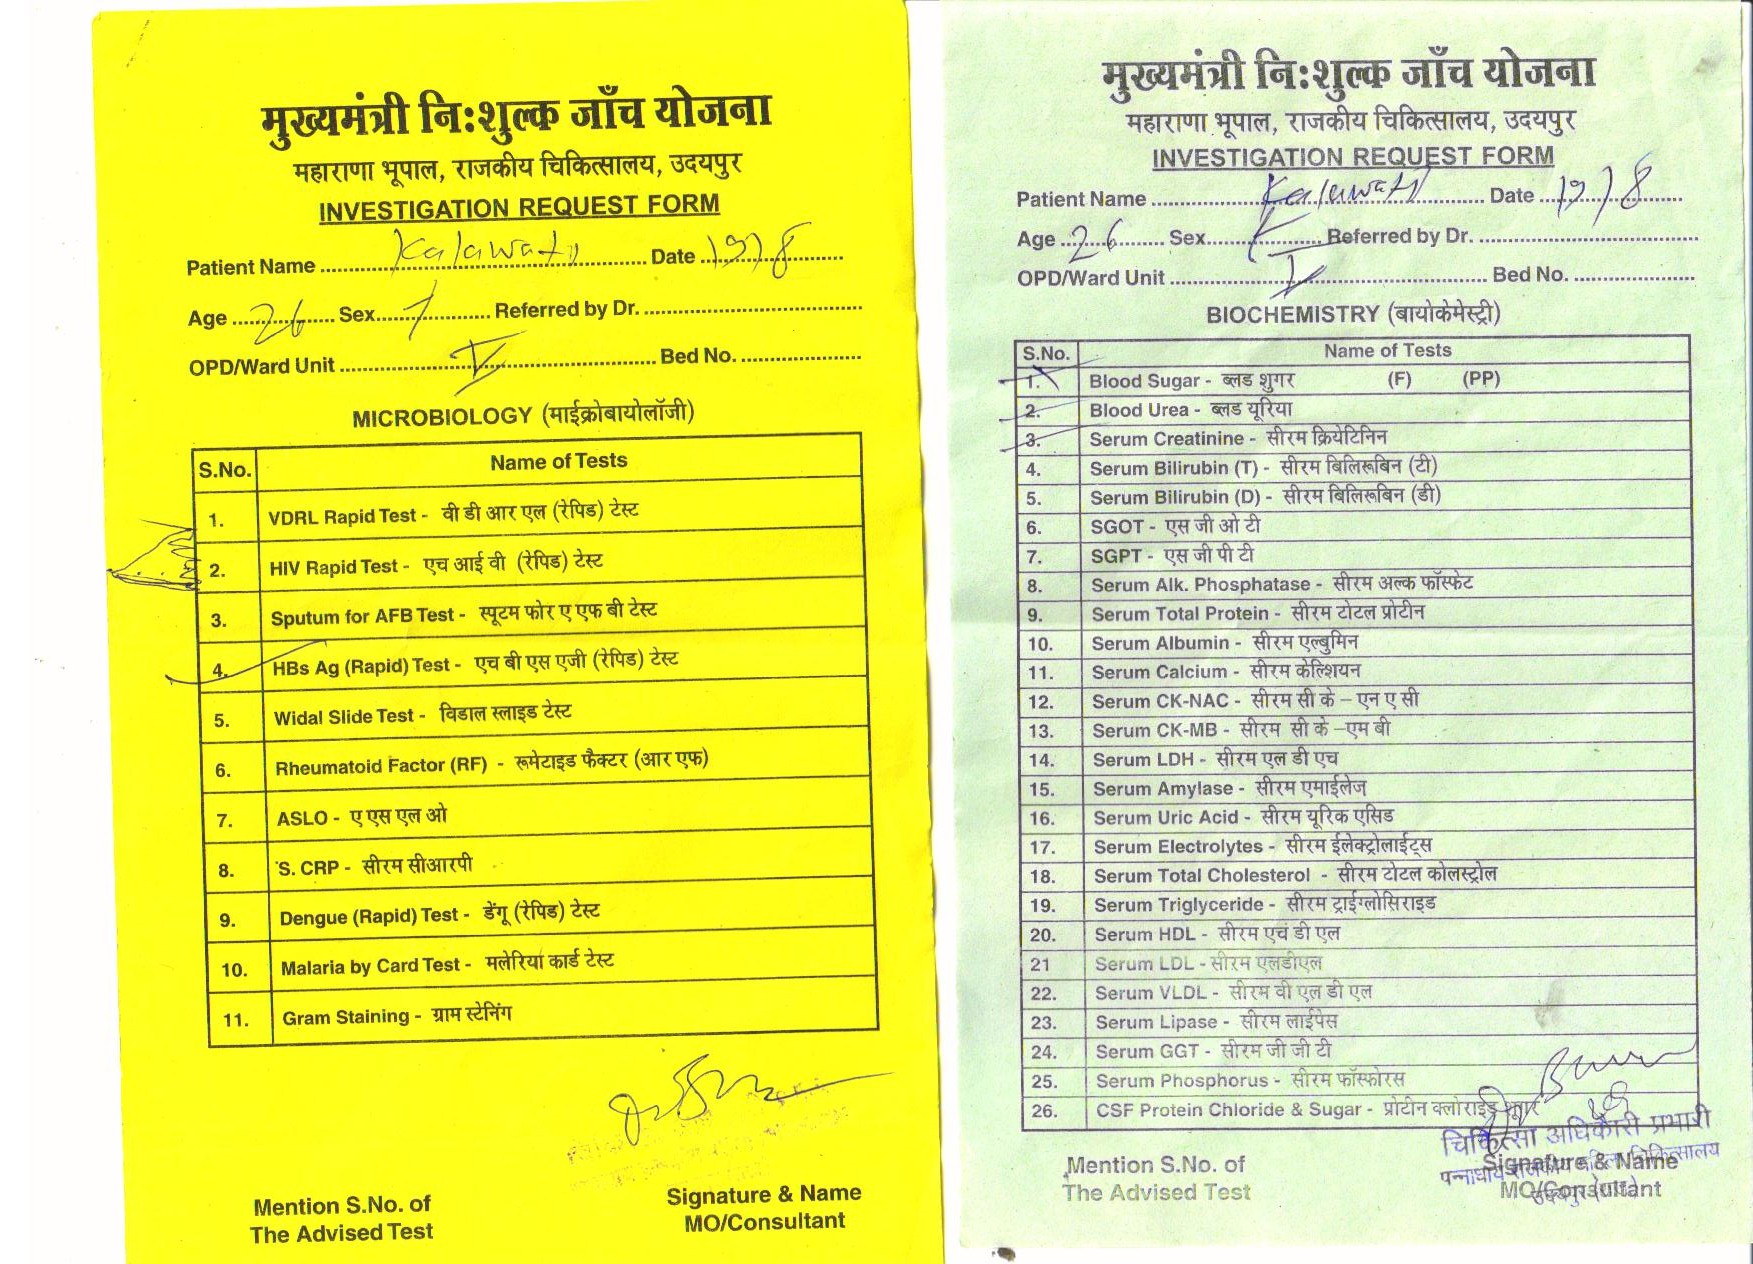 मुख्यमंत्री नि:शुल्क जाँच योजना
महाराणा भूपाल, राजकीय चिकित्सालय, उदयपुर
INVESTIGATION REQUEST FORM
Patient Name Kalawati Date 19/8
Age 26 Sex Referred by Dr.
OPD/Ward Unit V Bed No.
MICROBIOLOGY (माईक्रोबायोलॉजी)
S.No. Name of Tests
1. VDRL Rapid Test - वी डी आर एल (रेपिड) टेस्ट
2. HIV Rapid Test - एच आई वी (रेपिड) टेस्ट
3. Sputum for AFB Test - स्पूटम फोर ए एफ बी टेस्ट
4. HBs Ag (Rapid) Test - एच बी एस एजी (रेपिड) टेस्ट
5. Widal Slide Test - विडाल स्लाइड टेस्ट
6. Rheumatoid Factor (RF) - रूमेटाइड फैक्टर (आर एफ)
7. ASLO - ए एस एल ओ
8. S. CRP - सीरम सीआरपी
9. Dengue (Rapid) Test - डेंगू (रेपिड) टेस्ट
10. Malaria by Card Test - मलेरिया कार्ड टेस्ट
11. Gram Staining - ग्राम स्टेनिंग
Mention S.No. of
The Advised Test
Signature & Name
MO/Consultant
मुख्यमंत्री नि:शुल्क जाँच योजना
महाराणा भूपाल, राजकीय चिकित्सालय, उदयपुर
INVESTIGATION REQUEST FORM
Patient Name Kalawati Date 19/8
Age 26 Sex F Referred by Dr.
OPD/Ward Unit V Bed No.
BIOCHEMISTRY (बायोकेमेस्ट्री)
S.No. Name of Tests
1. Blood Sugar - ब्लड शुगर (F) (PP)
2. Blood Urea - ब्लड यूरिया
3. Serum Creatinine - सीरम क्रियेटिनिन
4. Serum Bilirubin (T) - सीरम बिलिरूबिन (टी)
5. Serum Bilirubin (D) - सीरम बिलिरूबिन (डी)
6. SGOT - एस जी ओ टी
7. SGPT - एस जी पी टी
8. Serum Alk. Phosphatase - सीरम अल्क फॉस्फेट
9. Serum Total Protein - सीरम टोटल प्रोटीन
10. Serum Albumin - सीरम एल्बुमिन
11. Serum Calcium - सीरम केल्शियन
12. Serum CK-NAC - सीरम सी के – एन ए सी
13. Serum CK-MB - सीरम सी के –एम बी
14. Serum LDH - सीरम एल डी एच
15. Serum Amylase - सीरम एमाईलेज
16. Serum Uric Acid - सीरम यूरिक एसिड
17. Serum Electrolytes - सीरम ईलेक्ट्रोलाईट्स
18. Serum Total Cholesterol - सीरम टोटल कोलस्ट्रोल
19. Serum Triglyceride - सीरम ट्राईग्लोसिराइड
20. Serum HDL - सीरम एच डी एल
21 Serum LDL - सीरम एलडीएल
22. Serum VLDL - सीरम वी एल डी एल
23. Serum Lipase - सीरम लाईपेस
24. Serum GGT - सीरम जी जी टी
25. Serum Phosphorus - सीरम फॉस्फोरस
26. CSF Protein Chloride & Sugar - प्रोटीन क्लोराईड
चिकित्सा अधिकारी प्रभारी
पन्नाधाय राजकीय महिला चिकित्सालय
उदयपुर (राज०)
Mention S.No. of
The Advised Test
Signature & Name
MO/Consultant